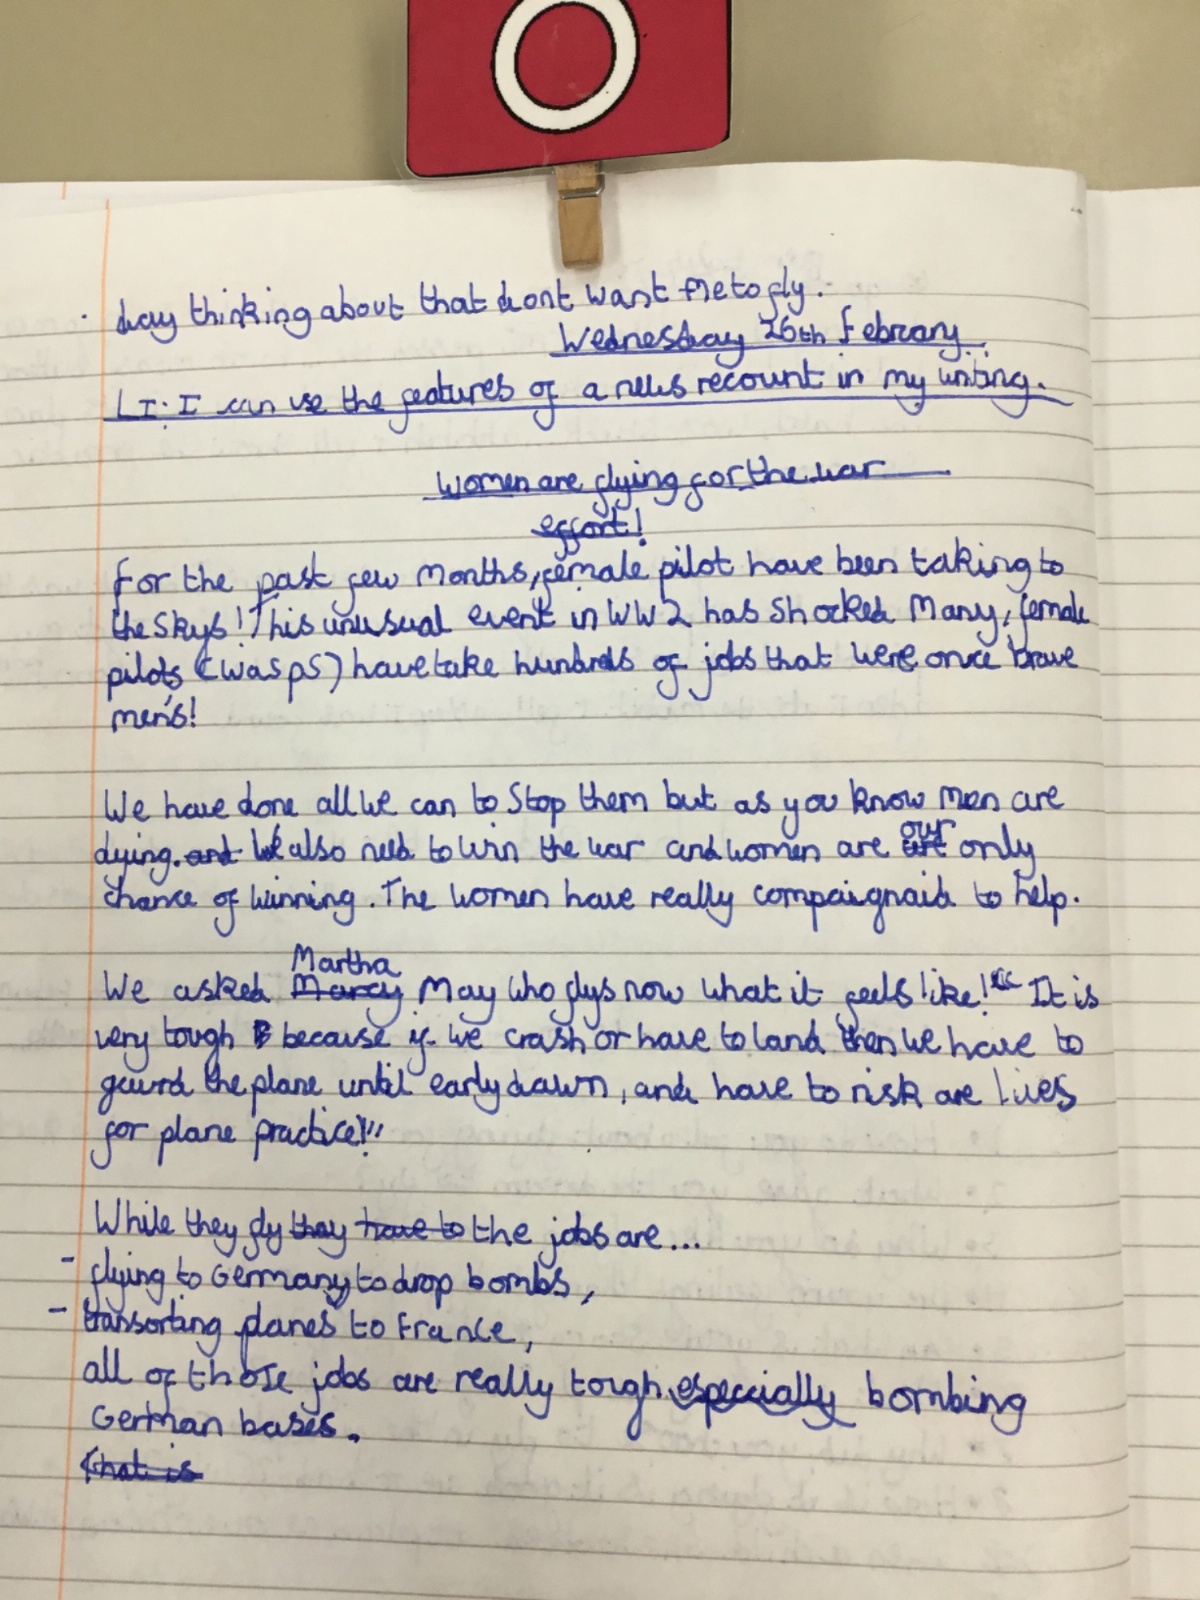 day thinking about that dont want me to fly.
Wednesday 26th February.
LI: I can use the features of a news recount in my writing.
Women are flying for the war
effort!
For the past few months, female pilot have been taking to
the skys! This unusual event in WW2 has shocked many, female
pilots (wasps) have take hundrds of jobs that were once brave
men's!
We have done all we can to stop them but as you know men are
dying. and We also need to win the war and women are our only
chance of winning. The women have really compaignaid to help.
We asked Martha May who flys now what it feels like! "It is
very tough because if we crash or have to land then we have to
guard the plane until early dawn, and have to risk are lives
for plane practice!"
While they fly they have to the jobs are...
- flying to Germany to drop bombs,
- transorting planes to France,
all of those jobs are really tough especially bombing
German bases.
that is